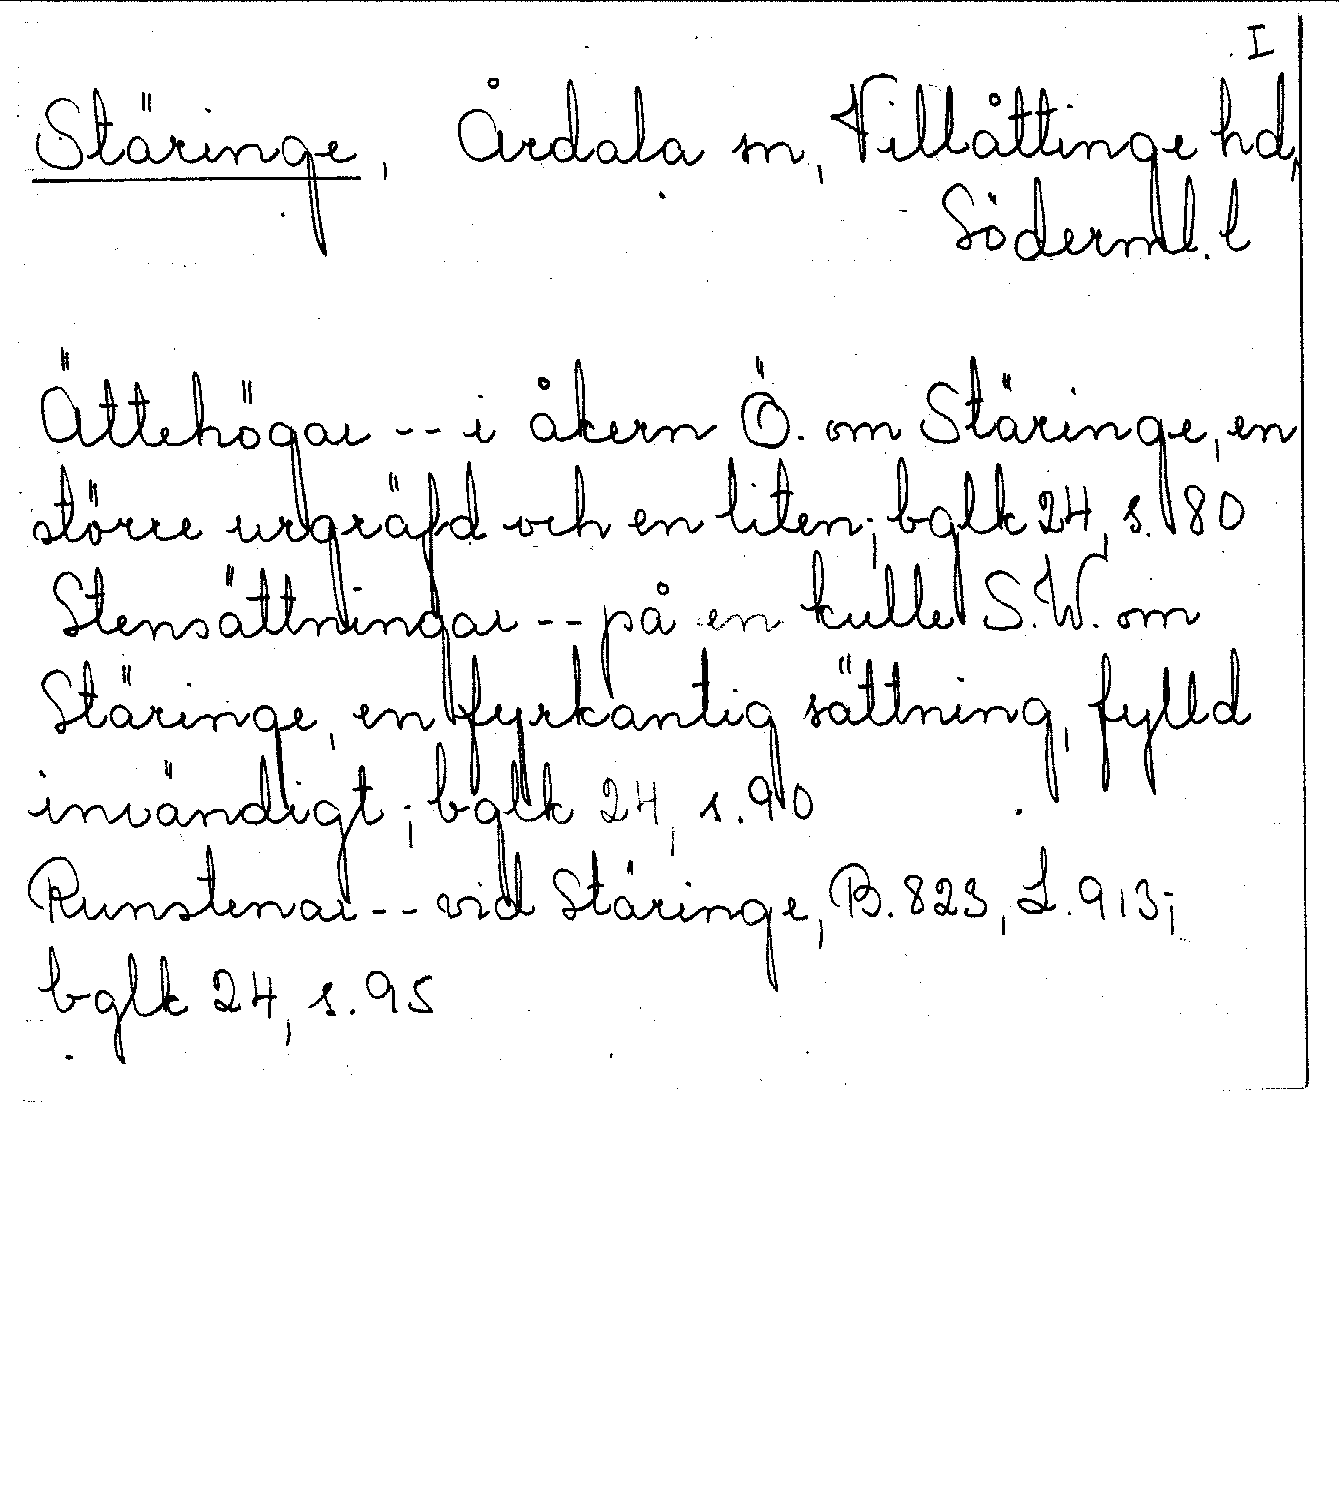 I
Stäringe, Årdala sn, Villåttinge hd,
Söderml. l
Ättehögar -- i åkern Ö. om Stäringe, en
större urgräfd och en liten; bglk 24, s. 80
Stensättningar -- på en kulle S.W. om
Stäringe, en fyrkantig sättning, fylld
invändigt; bglk 24, s. 90
Runstenar -- vid Stäringe, B. 823, L. 913;
bglk 24, s. 95